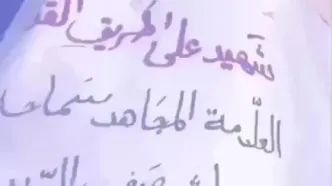 شهيد على طريق القد
العلّامة المجاهد سماحة
صفي الدين